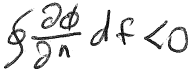 ∮ ∂φ/∂n df < 0